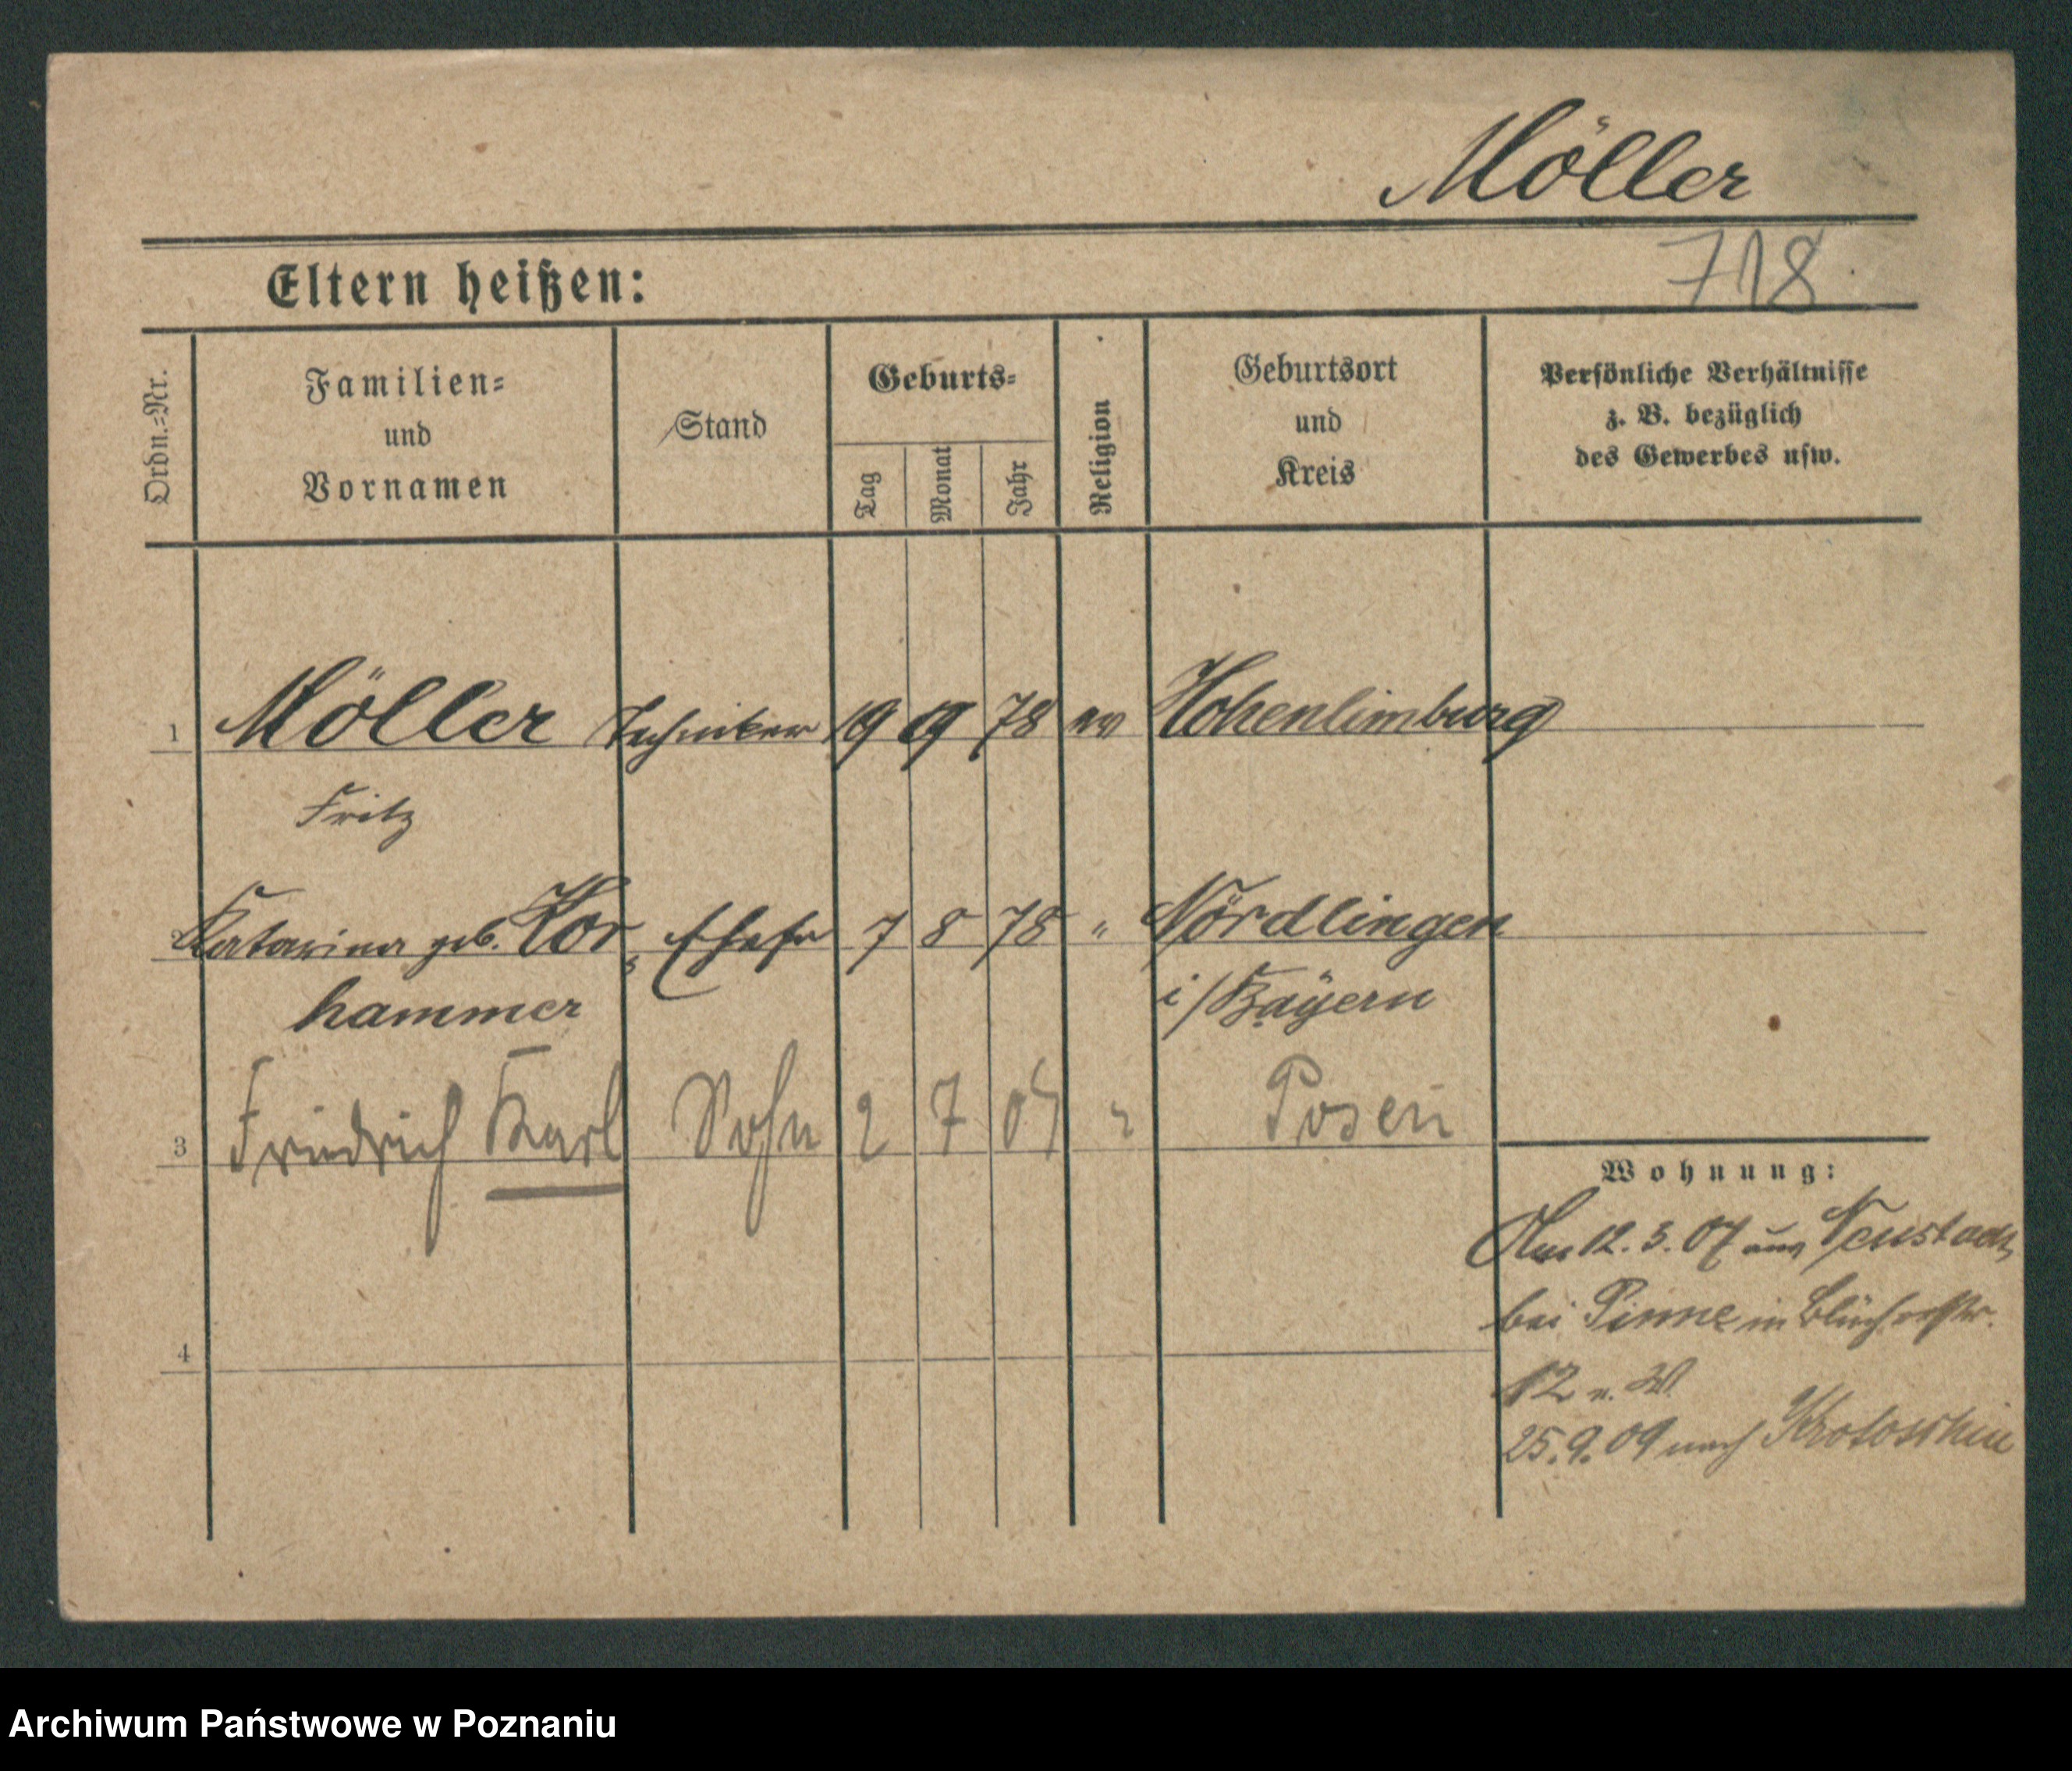 Möller
718
Eltern heißen:
Ordn.=Nr.
Familien=
und
Vornamen
Stand
Geburts=
Tag
Monat
Jahr
Religion
Geburtsort
und
Kreis
Persönliche Verhältnisse
z. B. bezüglich
des Gewerbes usw.
1 Möller Techniker 19 9 78 ev Hohenlimburg
Fritz
Katarina geb. Kor Ehefr 7 8 78 " Nördlingen
hammer i/Bayern
3 Friedrich Karl Sohn 2 7 07 " Posen
Wohnung:
12. 3. 07 aus Neustadt
bei Pinne in Blücherstr.
12 v. W
4
25.9.09 nach Krotoschin
Archiwum Państwowe w Poznaniu